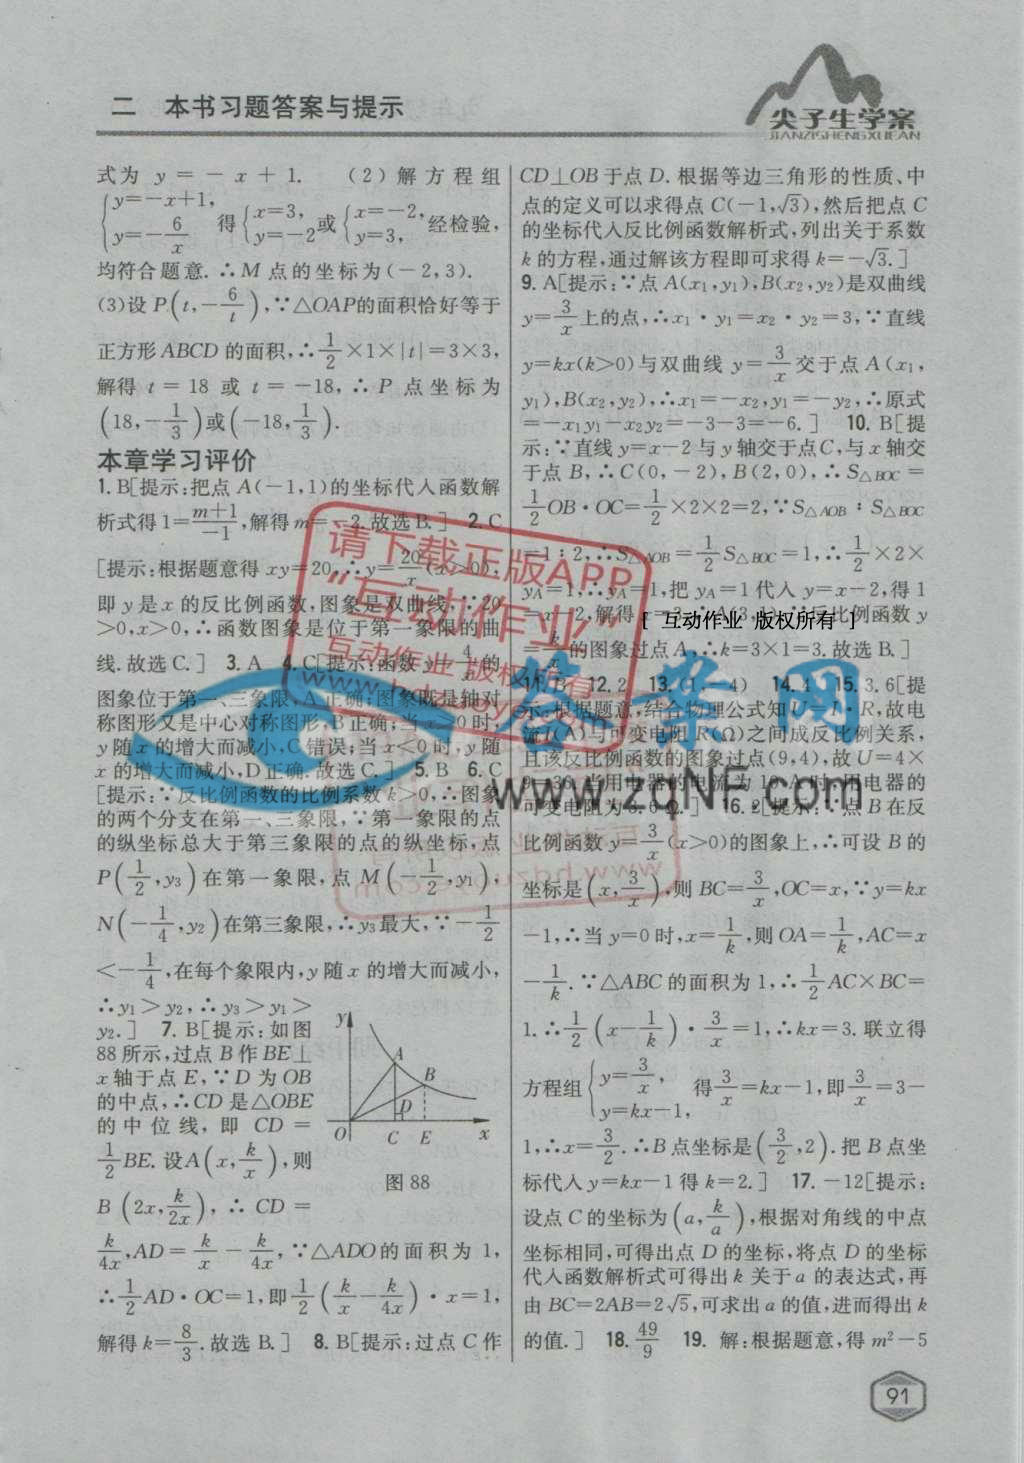 二 本书习题答案与提示
尖子生学案
JIANZISHENGXUEAN
式为 y=-x+1. (2)解方程组
{y=-x+1, y=-6/x 得{x=3, y=-2或{x=-2, y=3, 经检验,
均符合题意.∴M点的坐标为(-2,3).
(3)设P(t,-6/t),∵△OAP的面积恰好等于
正方形ABCD的面积,∴1/2×1×|t|=3×3,
解得 t=18 或 t=-18,∴P点坐标为
(18,-1/3)或(-18,1/3).
本章学习评价
1. B[提示:把点A(-1,1)的坐标代入函数解
析式得1=m+1/-1,解得m=-2.故选B.] 2. C
[提示:根据题意得xy=20,∴y=20/x(x>0),
即y是x的反比例函数,图象是双曲线,∵20
>0,x>0,∴函数图象是位于第一象限的曲
线.故选C.] 3. A 4. C[提示:函数y=4/x的
图象位于第一、三象限,A正确;图象既是轴对
称图形又是中心对称图形,B正确;当x>0时,
y随x的增大而减小,C错误;当x<0时,y随
x的增大而减小,D正确.故选C.] 5. B 6. C
[提示:∵反比例函数的比例系数k>0,∴图象
的两个分支在第一、三象限,∵第一象限的点
的纵坐标总大于第三象限的点的纵坐标,点
P(1/2,y₃)在第一象限,点M(-1/2,y₁),
N(-1/4,y₂)在第三象限,∴y₃最大,∵-1/2
<-1/4,在每个象限内,y随x的增大而减小,
∴y₁>y₂,∴y₃>y₁>
y₂.] 7. B[提示:如图
88所示,过点B作BE⊥
x轴于点E,∵D为OB
的中点,∴CD是△OBE
的中位线,即CD=
1/2BE.设A(x,k/x),则
B(2x,k/2x),∴CD=
y
A
B
D
O
C
E
x
图88
k/4x,AD=k/x-k/4x,∵△ADO的面积为1,
∴1/2AD·OC=1,即1/2(k/x-k/4x)·x=1,
解得k=8/3.故选B.] 8. B[提示:过点C作
CD⊥OB于点D.根据等边三角形的性质、中
点的定义可以求得点C(-1,√3),然后把点C
的坐标代入反比例函数解析式,列出关于系数
k的方程,通过解该方程即可求得k=-√3.]
9. A[提示:∵点A(x₁,y₁),B(x₂,y₂)是双曲线
y=3/x上的点,∴x₁·y₁=x₂·y₂=3,∵直线
y=kx(k>0)与双曲线y=3/x交于点A(x₁,
y₁),B(x₂,y₂),∴x₁=-x₂,y₁=-y₂,∴原式
=-x₁y₁-x₂y₂=-3-3=-6.] 10. B[提
示:∵直线y=x-2与y轴交于点C,与x轴交
于点B,∴C(0,-2),B(2,0),∴S△BOC=
1/2OB·OC=1/2×2×2=2,∵S△AOB:S△BOC
=1:2,∴S△AOB=1/2S△BOC=1,∴1/2×2×
yA=1,∴yA=1,把yA=1代入y=x-2,得1
=x-2,解得x=3,∴A(3,1),∵反比例函数y
=k/x的图象过点A,∴k=3×1=3.故选B.]
11. B 12. 2 13. (1,-4) 14. 4 15. 3.6[提
示:根据题意,结合物理公式知U=I·R,故电
流I(A)与可变电阻R(Ω)之间成反比例关系,
且该反比例函数的图象过点(9,4),故U=4×
9=36.当用电器的电流为10 A时,用电器的
可变电阻为3.6 Ω.] 16. 2[提示:∵点B在反
比例函数y=3/x(x>0)的图象上,∴可设B的
坐标是(x,3/x),则BC=3/x,OC=x,∵y=kx
-1,∴当y=0时,x=1/k,则OA=1/k,AC=x
-1/k.∵△ABC的面积为1,∴1/2AC×BC=
1.∴1/2(x-1/k)·3/x=1,∴kx=3.联立得
方程组{y=3/x, y=kx-1, 得3/x=kx-1,即3/x=3-
1,∴x=3/2.∴B点坐标是(3/2,2).把B点坐
标代入y=kx-1得k=2.] 17. -12[提示:
设点C的坐标为(a,k/a),根据对角线的中点
坐标相同,可得出点D的坐标,将点D的坐标
代入函数解析式可得出k关于a的表达式,再
由BC=2AB=2√5,可求出a的值,进而得出k
的值.] 18. 49/9 19. 解:根据题意,得m²-5
91
请下载正版APP
“互动作业”
互动作业 版权所有
[ 互动作业 版权所有 ]
答案网
www.zqNF.com